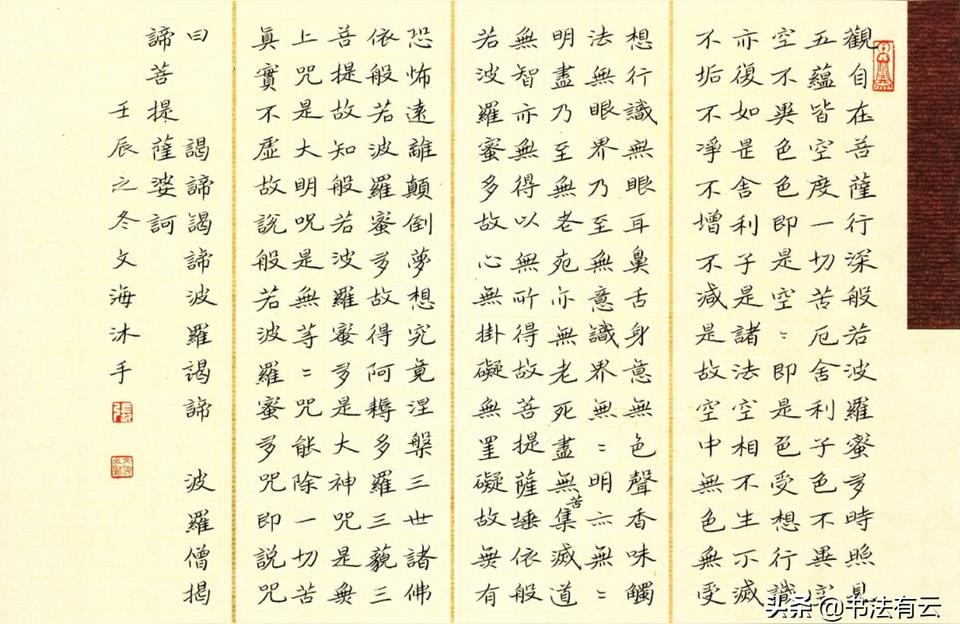 觀自在菩薩行深般若波羅蜜多時照見
五蘊皆空度一切苦厄舍利子色不異空
空不異色色即是空〻即是色受想行識
亦復如是舍利子是諸法空相不生不滅
不垢不淨不增不減是故空中無色無受
想行識無眼耳鼻舌身意無色聲香味觸
法無眼界乃至無意識界無〻明亦無〻
明盡乃至無老死亦無老死盡無苦集滅道
無智亦無得以無所得故菩提薩埵依般
若波羅蜜多故心無掛礙無罣礙故無有
恐怖遠離顛倒夢想究竟涅槃三世諸佛
依般若波羅蜜多故得阿耨多羅三藐三
菩提故知般若波羅蜜多是大神咒是無
上咒是大明咒是無等〻咒能除一切苦
真實不虛故說般若波羅蜜多咒即說咒
曰 謁諦謁諦波羅謁諦 波羅僧揭
諦菩提薩婆訶
壬辰之冬文海沐手
張
头条 @书法有云